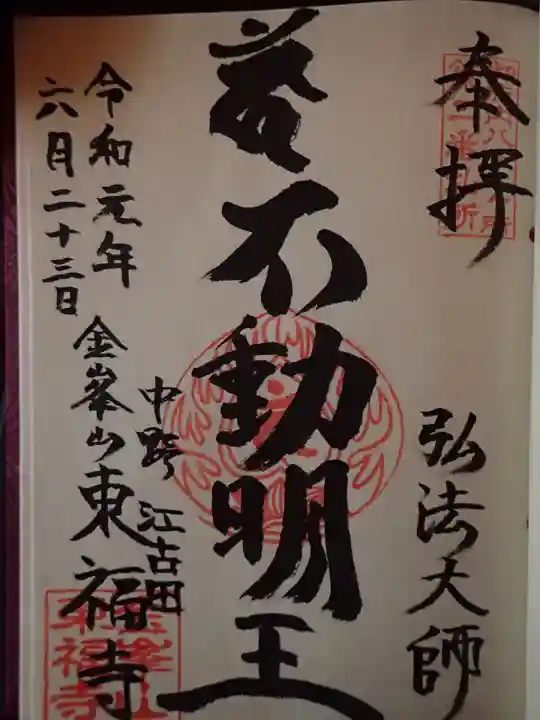 奉拝
弘法大師
不動明王
中野 江古田
金峯山東福寺
令和元年
六月二十三日
金峯山
東福寺